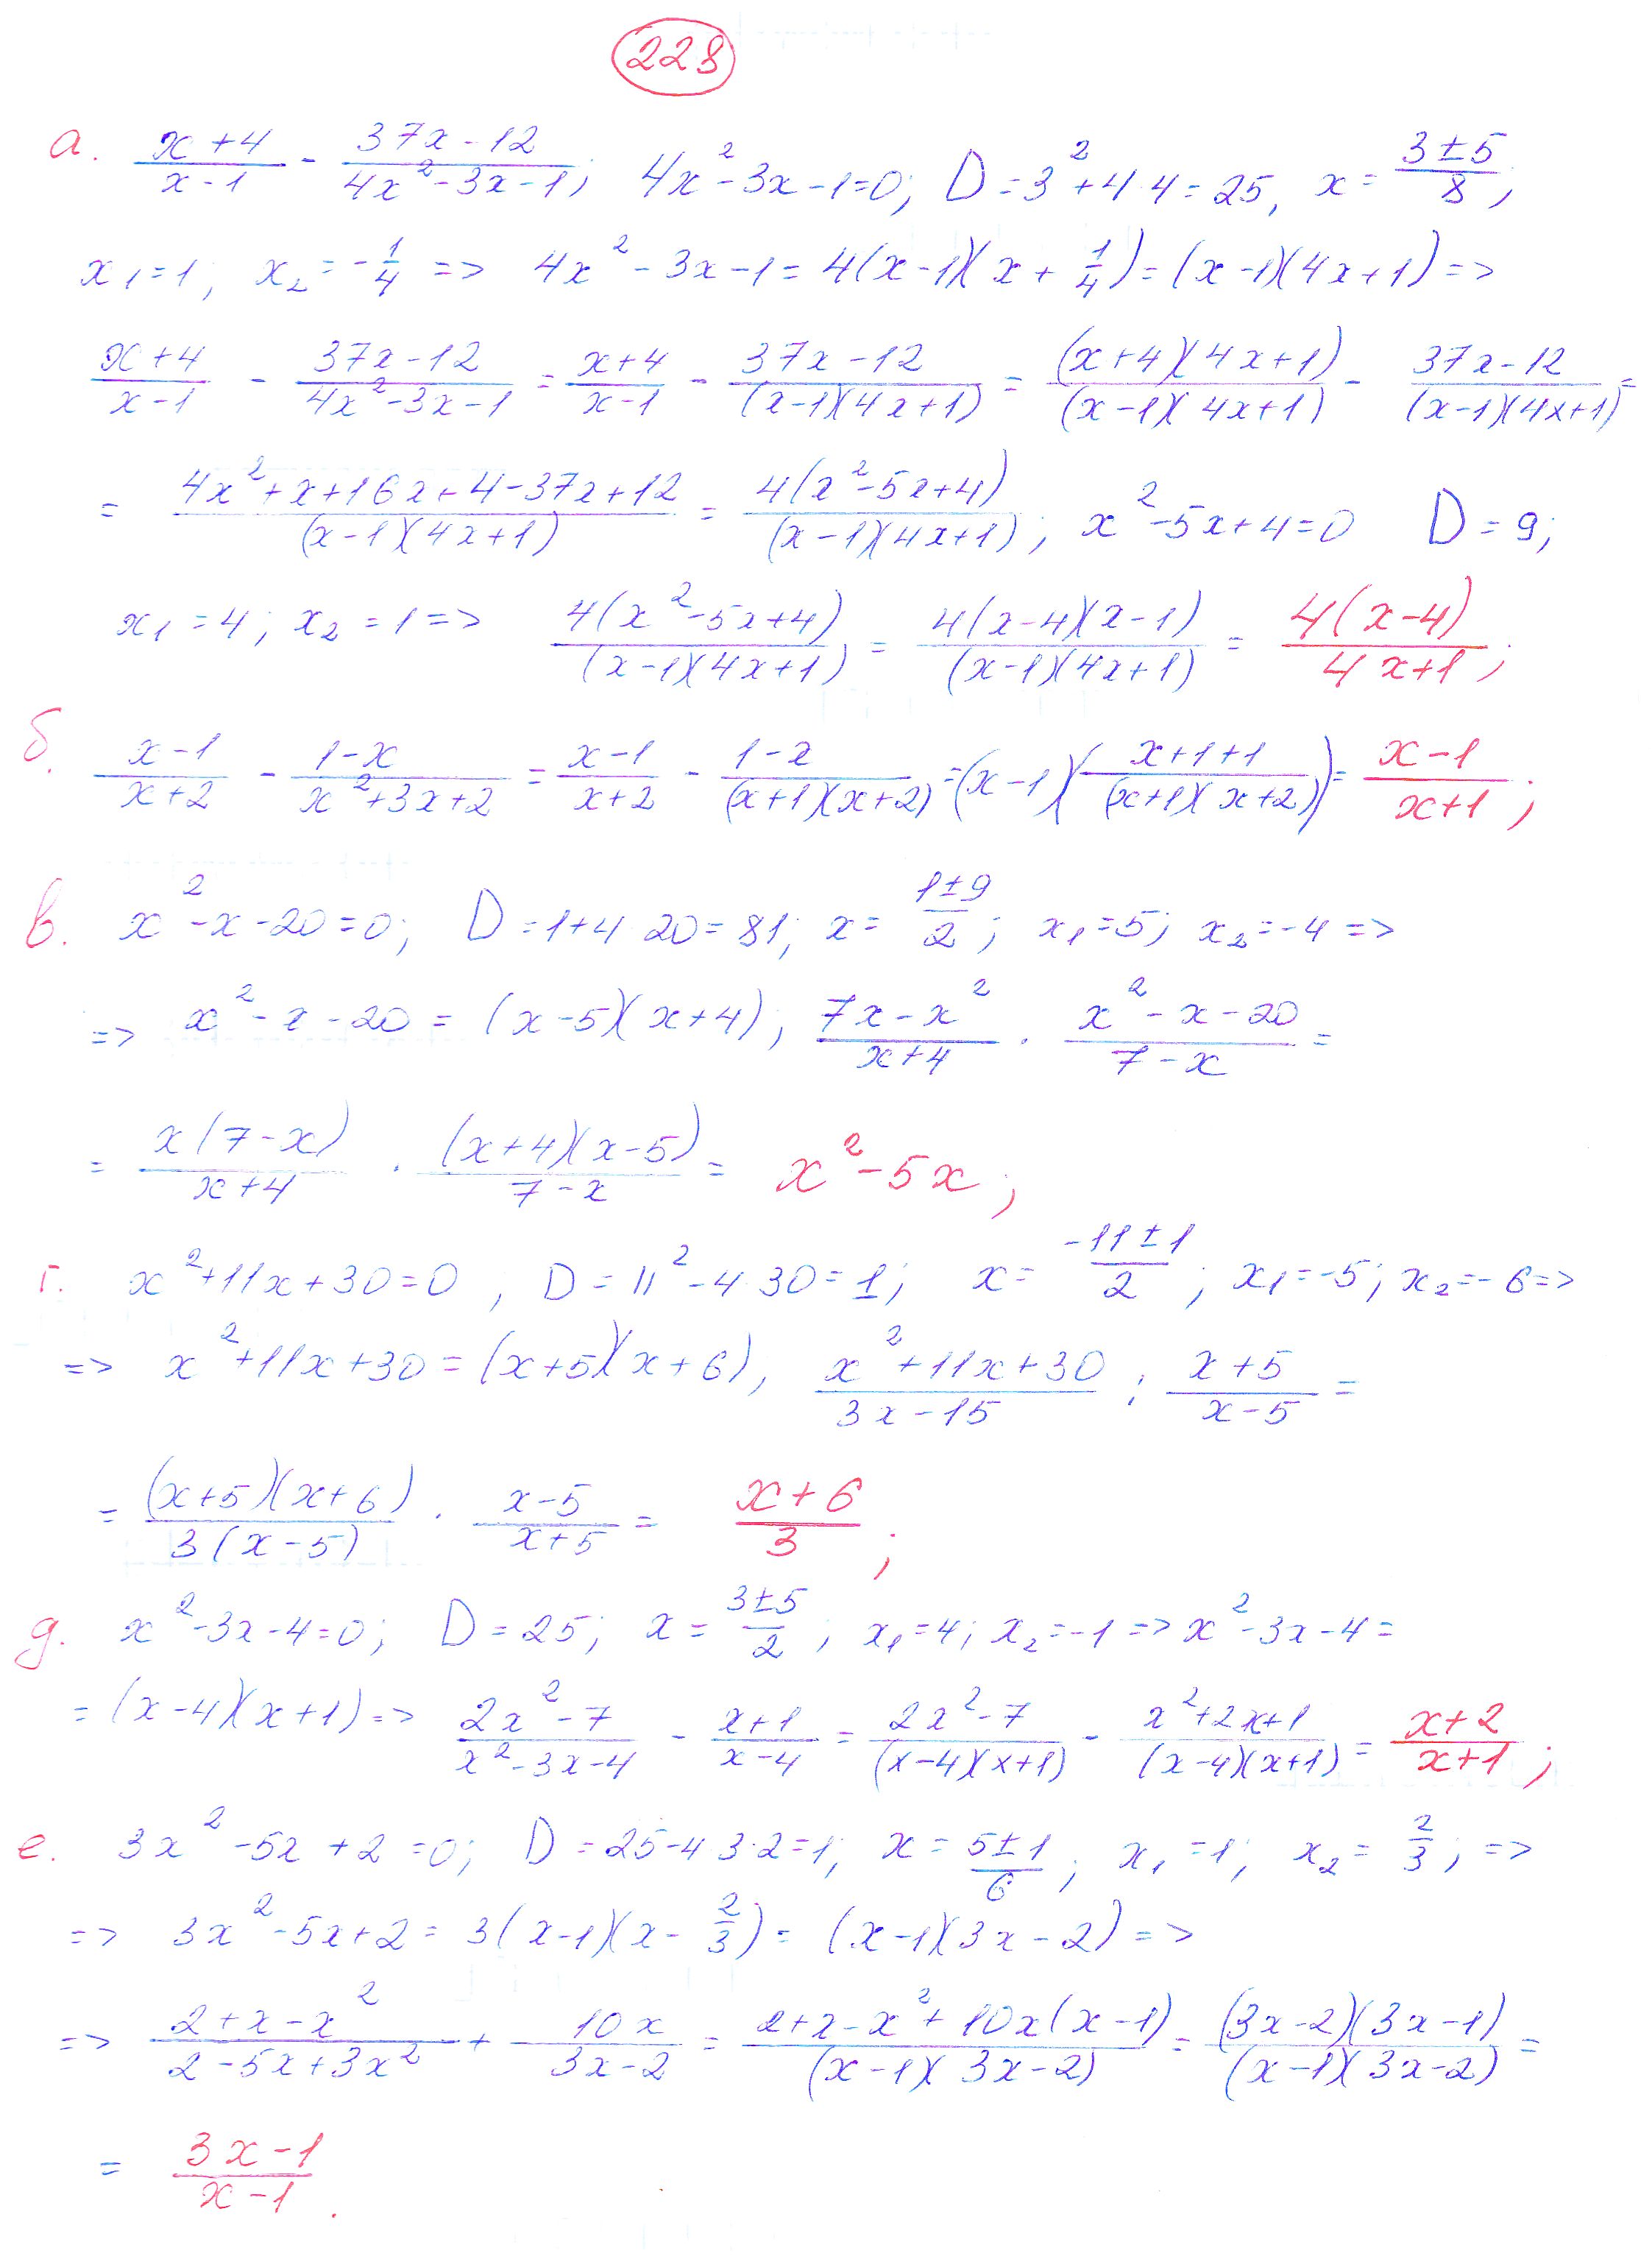 228
а. (x+4)/(x-1) - (37x-12)/(4x²-3x-1); 4x²-3x-1=0; D=3²+4·4=25, x=(3±5)/8;
x₁=1; x₂=-1/4 => 4x²-3x-1=4(x-1)(x+1/4)=(x-1)(4x+1)=>
(x+4)/(x-1) - (37x-12)/(4x²-3x-1) = (x+4)/(x-1) - (37x-12)/((x-1)(4x+1)) = ((x+4)(4x+1))/((x-1)(4x+1)) - (37x-12)/((x-1)(4x+1)) =
= (4x²+x+16x+4-37x+12)/((x-1)(4x+1)) = (4(x²-5x+4))/((x-1)(4x+1)); x²-5x+4=0 D=9;
x₁=4; x₂=1=> (4(x²-5x+4))/((x-1)(4x+1)) = (4(x-4)(x-1))/((x-1)(4x+1)) = (4(x-4))/(4x+1);
б. (x-1)/(x+2) - (1-x)/(x²+3x+2) = (x-1)/(x+2) - (1-x)/((x+1)(x+2)) = (x-1)((x+1+1)/((x+1)(x+2))) = (x-1)/(x+1);
в. x²-x-20=0; D=1+4·20=81; x=(1±9)/2; x₁=5; x₂=-4=>
=> x²-x-20=(x-5)(x+4); (7x-x²)/(x+4) · (x²-x-20)/(7-x) =
= (x(7-x))/(x+4) · ((x+4)(x-5))/(7-x) = x²-5x;
г. x²+11x+30=0, D=11²-4·30=1; x=(-11±1)/2; x₁=-5; x₂=-6=>
=> x²+11x+30=(x+5)(x+6), (x²+11x+30)/(3x-15) : (x+5)/(x-5) =
= ((x+5)(x+6))/(3(x-5)) · (x-5)/(x+5) = (x+6)/3;
д. x²-3x-4=0; D=25; x=(3±5)/2; x₁=4; x₂=-1=> x²-3x-4=
=(x-4)(x+1)=> (2x²-7)/(x²-3x-4) - (x+1)/(x-4) = (2x²-7)/((x-4)(x+1)) - (x²+2x+1)/((x-4)(x+1)) = (x+2)/(x+1);
е. 3x²-5x+2=0; D=25-4·3·2=1; x=(5±1)/6; x₁=1; x₂=2/3; =>
=> 3x²-5x+2=3(x-1)(x-2/3)=(x-1)(3x-2)=>
=> (2+x-x²)/(2-5x+3x²) + 10x/(3x-2) = (2+x-x²+10x(x-1))/((x-1)(3x-2)) = ((3x-2)(3x-1))/((x-1)(3x-2)) =
= (3x-1)/(x-1).